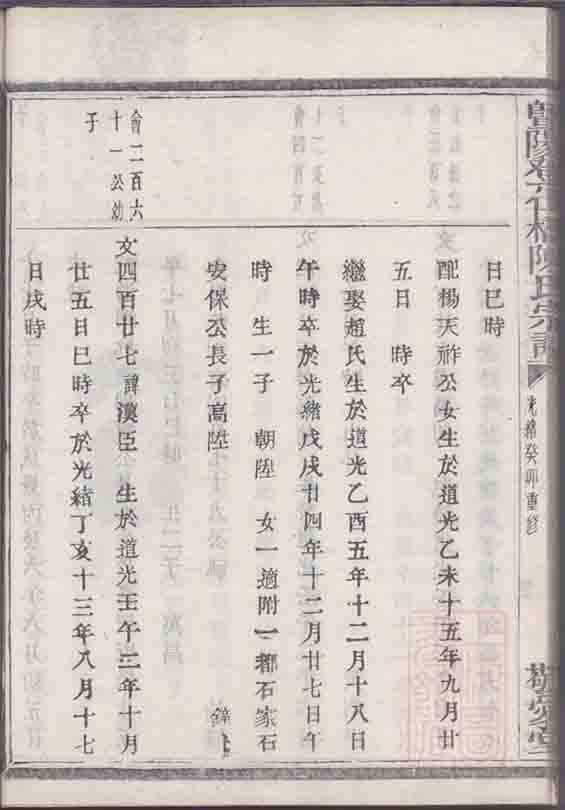 暨陽
陳氏宗譜
光緒癸卯重修
敬愛堂
日巳時
配楊天祚公女生於道光乙未十五年九月廿
五日 時卒
繼娶趙氏生於道光乙酉五年十二月十八日
午時卒於光緒戊戌廿四年十二月廿七日午
時 生一子 朝陞 女一適附一都石家石
安保公長子高陞
會二百六
十一公幼
子
文四百廿七諱漢臣 生於道光壬午二年十月
廿五日巳時卒於光緒丁亥十三年八月十七
日戌時